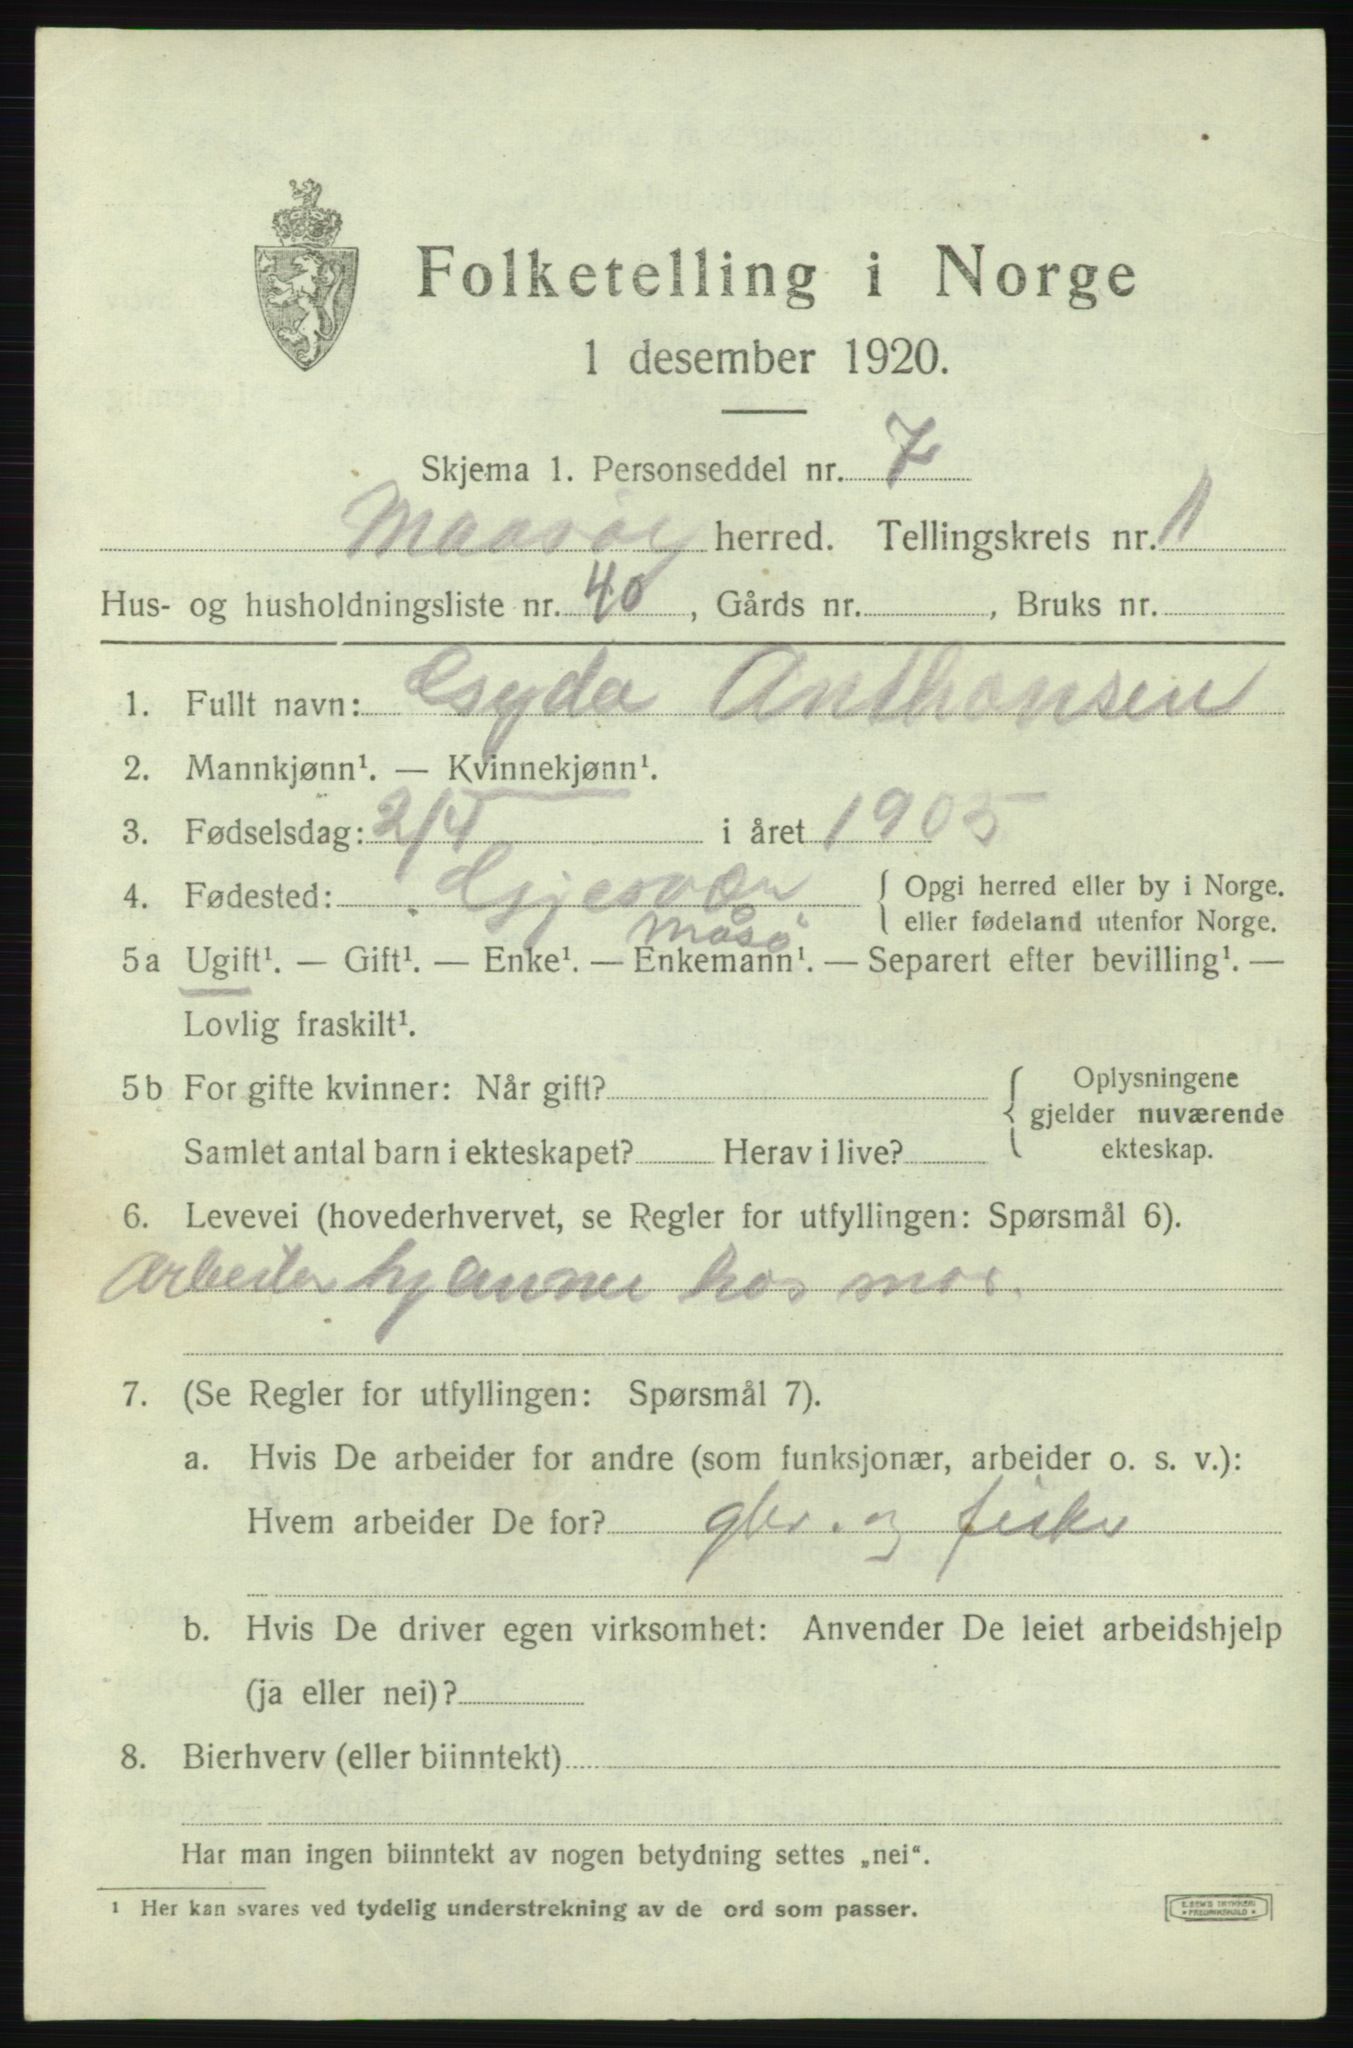 Folketelling i Norge
1 desember 1920.
Skjema 1. Personseddel nr. 7
Maasöy herred. Tellingskrets nr. 11
Hus- og husholdningsliste nr. 40, Gårds nr. , Bruks nr.
1. Fullt navn: Gyda Anthonsen
2. Mannkjønn¹. — Kvinnekjønn¹.
3. Fødselsdag: 2/4 i året 1905
4. Fødested: Gjesvær { Opgi herred eller by i Norge.
Måsö eller fødeland utenfor Norge.
5a Ugift¹. — Gift¹. — Enke¹. — Enkemann¹. — Separert efter bevilling¹. —
Lovlig fraskilt¹.
5b For gifte kvinner: Når gift? { Oplysningene
gjelder nuværende
Samlet antal barn i ekteskapet? Herav i live? ekteskap.
6. Levevei (hovederhvervet, se Regler for utfyllingen: Spørsmål 6).
Arbeider hjemme hos mor.
7. (Se Regler for utfyllingen: Spørsmål 7).
a. Hvis De arbeider for andre (som funksjonær, arbeider o. s. v.):
Hvem arbeider De for? gbr. og fisker
b. Hvis De driver egen virksomhet: Anvender De leiet arbeidshjelp
(ja eller nei)?
8. Bierhverv (eller biinntekt)
Har man ingen biinntekt av nogen betydning settes „nei“.
¹ Her kan svares ved tydelig understrekning av de ord som passer.